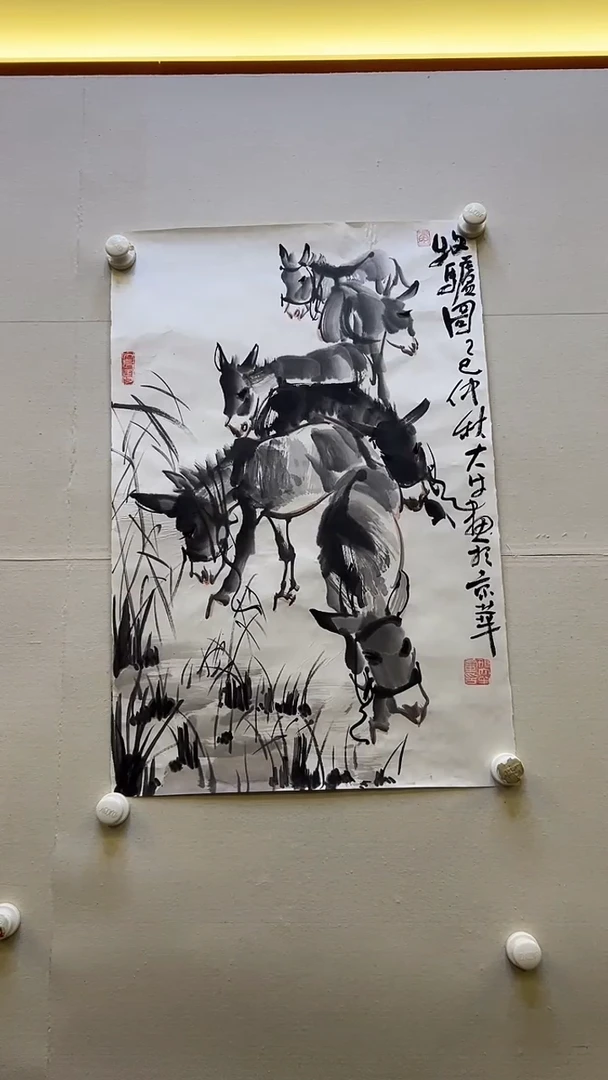 牧驢圖乙巳仲秋大牛画於京華